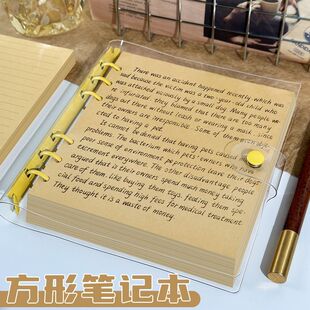 There was an accident happened recently which was
sad because the victim was a two-year old child who
was attacked viciously by a small dog. Many people we
infuriated, they blamed that there are too many
dogs out there without leash or wearing a mask.
their owners are irresponsible. Some of them
to having a pet.
It cannot be denied that having pets could
problems. The bacterium which pets'
poor some of environment protection leave their dogs'
excrement everywhere. The other disadvantage people
argued was is their owners spend much money taking
care of them, like buying them toys, feeding them spe-
cial food and spending high fees for medical treatment.
They thought it is a waste of money.
方形笔记本